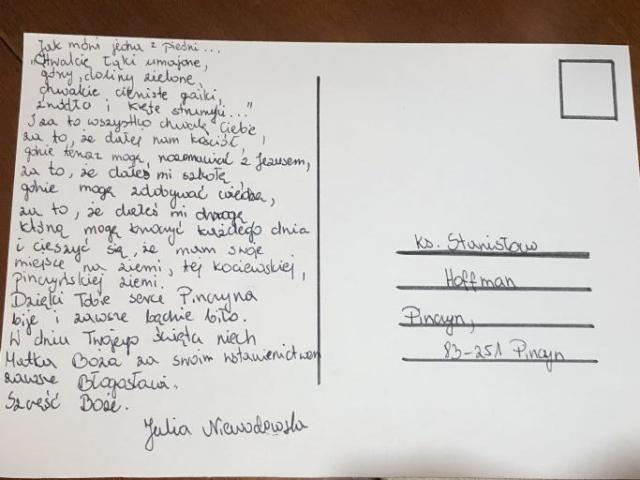 Jak mówi jedna z pieśni...
„Chwalcie łąki umajone,
góry, doliny zielone,
chwalcie cieniste gaiki,
źródła i kręte strumyki..."
I za to wszystko chwalę Ciebie
za to, że dałeś nam kościół,
gdzie teraz mogę rozmawiać z Jezusem,
za to, że dałeś mi szkołę
gdzie mogę zdobywać wiedzę,
za to, że dałeś mi drogę
którą mogę kroczyć każdego dnia
i cieszyć się, że mam swoje
miejsce na ziemi, tej kociewskiej,
pinczyńskiej ziemi.
Dzięki Tobie serce Pinczyna
bije i zawsze będzie biło.
W dniu Twojego święta niech
Matka Boża za swoim wstawiennictwem
zawsze Błogosławi.
Szczęść Boże.
Julia Niewodowska
ks. Stanisław
Hoffman
Pinczyn,
83-251 Pinczyn